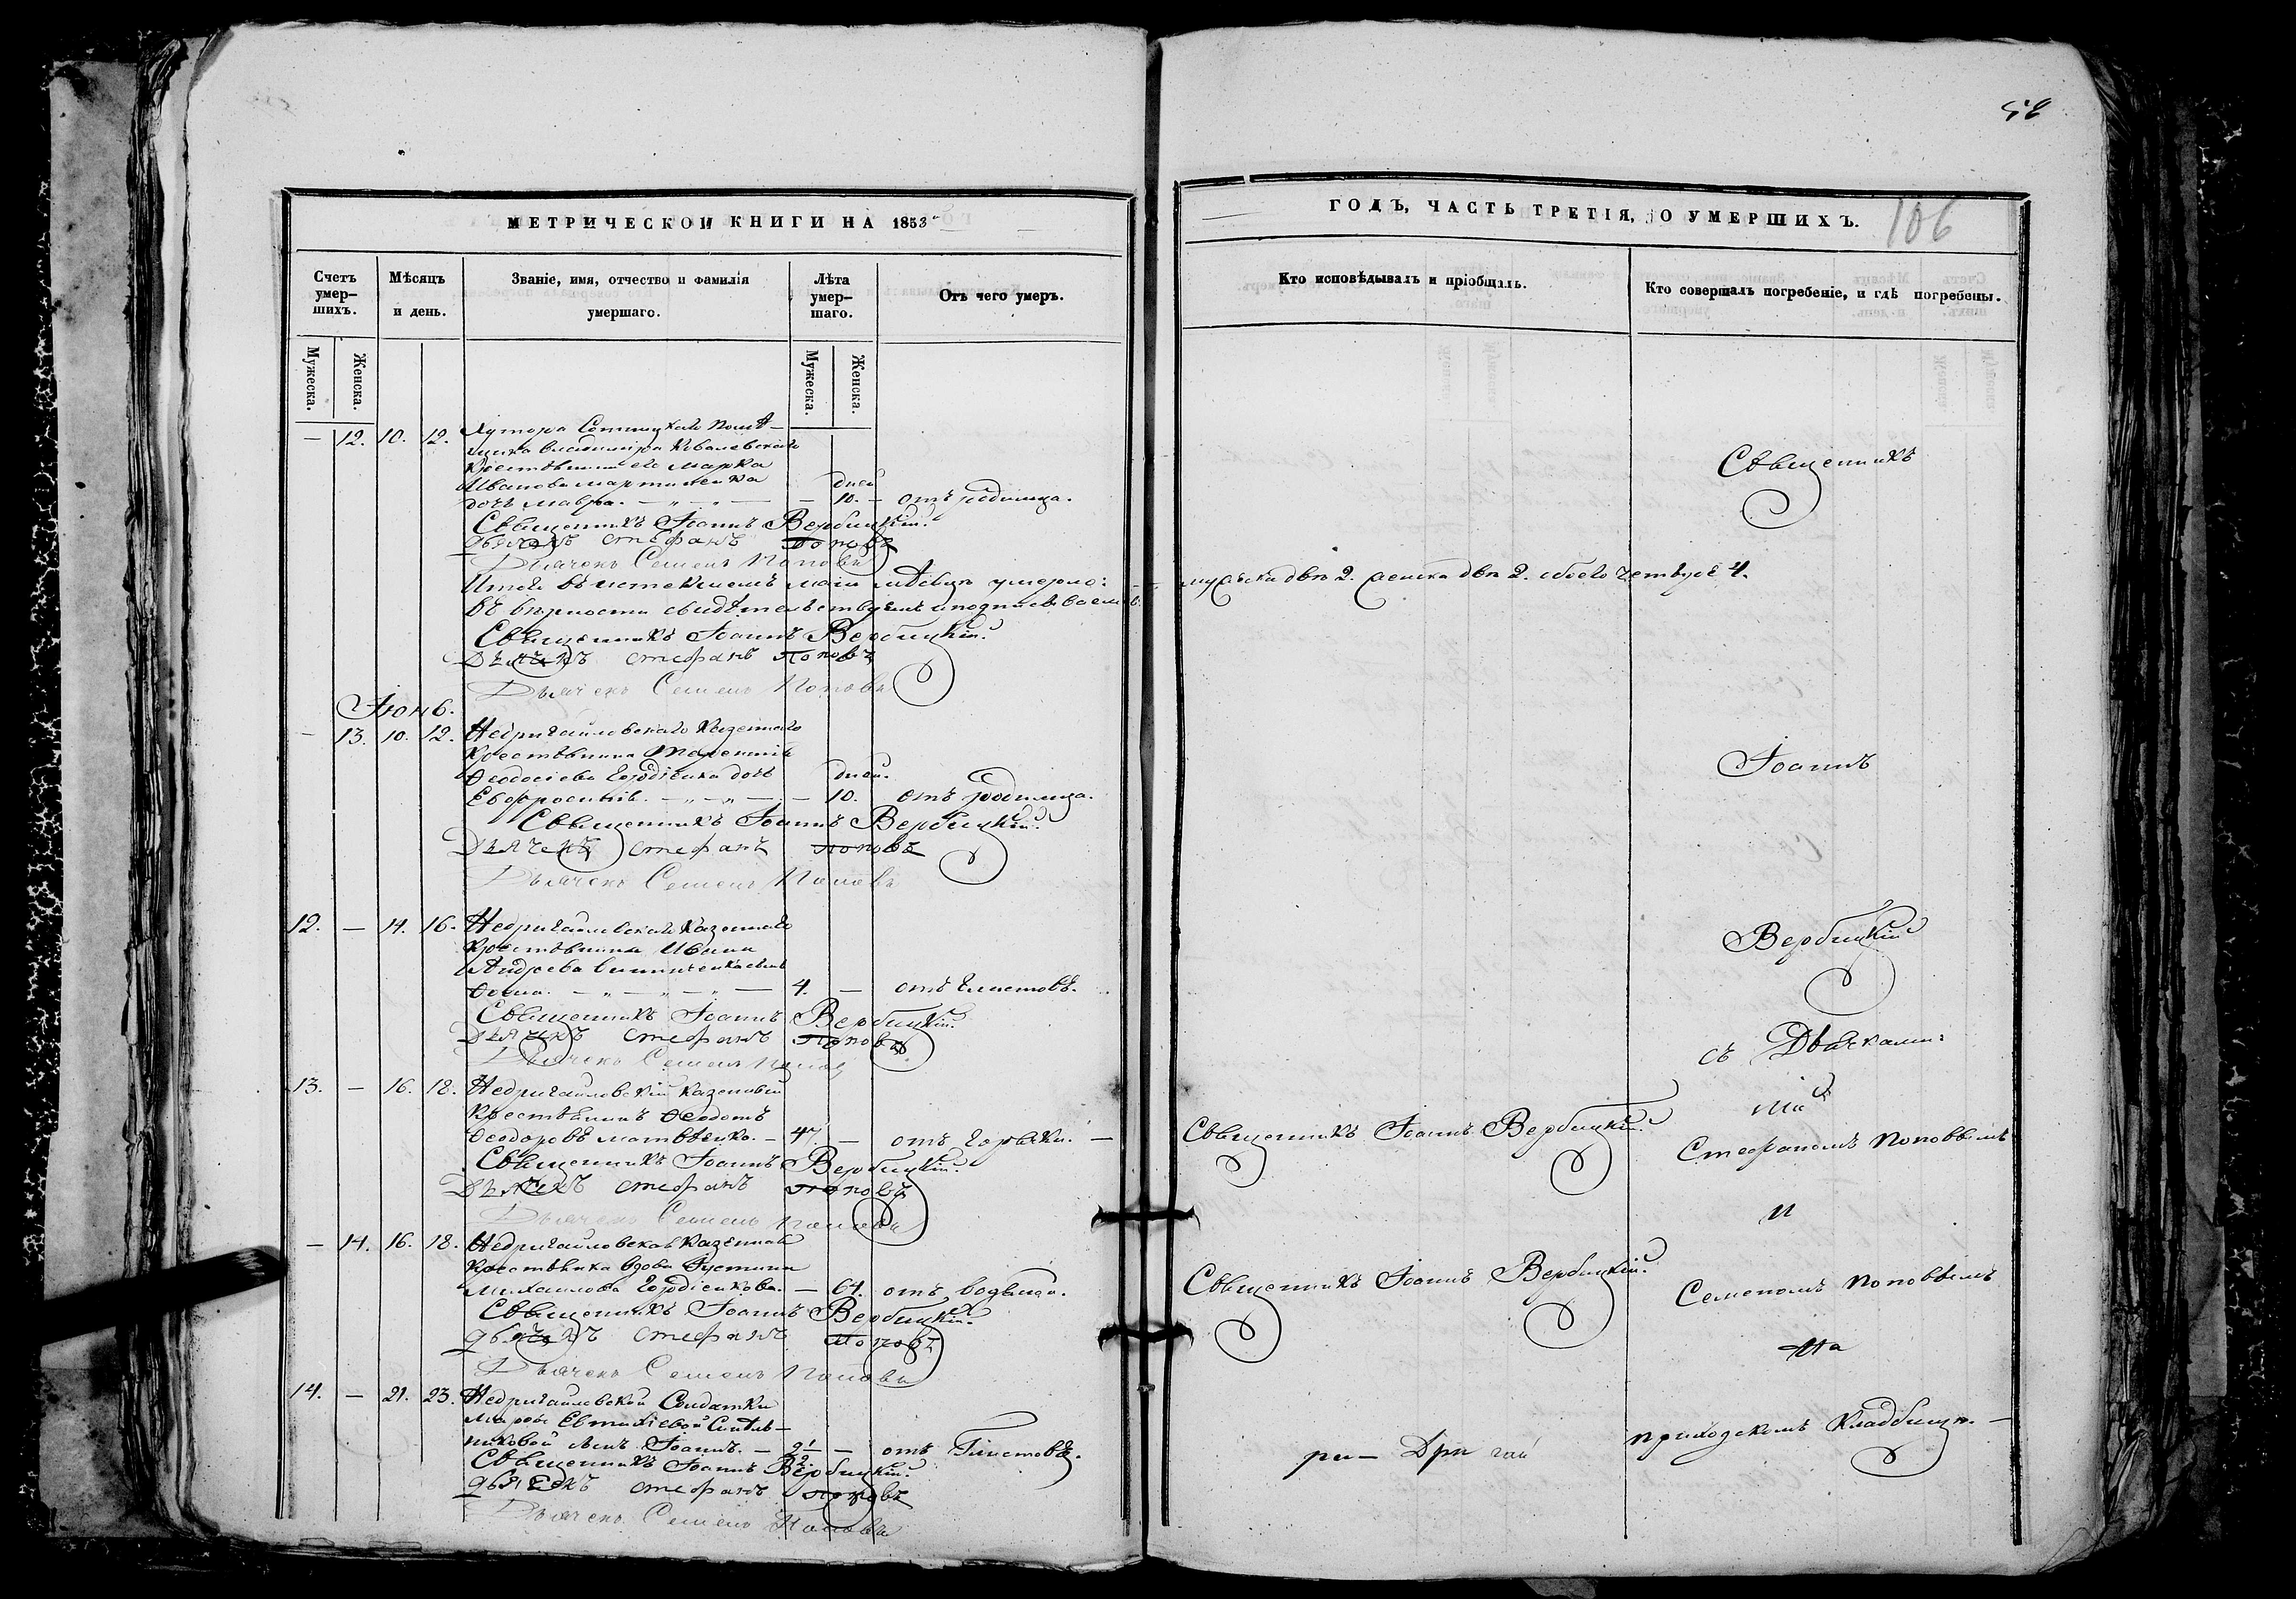 52
МЕТРИЧЕСКОЙ КНИГИ НА 1853
ГОДЪ, ЧАСТЬ ТРЕТІЯ, О УМЕРШИХЪ.
106
Счетъ умер-шихъ.
Мѣсяцъ и день.
Званіе, имя, отчество и фамилія умершаго.
Лѣта умер-шаго.
Отъ чего умеръ.
Кто исповѣдывалъ и пріобщалъ.
Кто совершалъ погребеніе, и гдѣ погребены.
Мужеска.
Женска.
Мужеска.
Женска.
— 12. 10. 12. Хутора помѣ-
щика Владиміра Ковалевскаго
Крестьянина его Марка
Иванова Мартиненка дней
дочь Мавра. — 10. — отъ родимца.
Священникъ Іоаннъ Вербицкій.
Дьячекъ Стефанъ Поповъ
Дьячекъ Семенъ Поповъ
Итого въ истекшемъ маи мѣсяцѣ умерло: мужеска два 2. женска двѣ 2. обоего четыре 4.
въ вѣрности свидѣтельствуемъ и подписываемся
Священникъ Іоаннъ Вербицкій.
Дьячекъ Стефанъ Поповъ
Дьячекъ Семенъ Поповъ
Іюнь.
— 13. 10. 12. Недригайловскаго Казеннаго
Крестьянина
Ѳеодосіева Гордіенка дочь дней.
Евфросинія. — 10. отъ родимца.
Священникъ Іоаннъ Вербицкій.
Дьячекъ Стефанъ Поповъ
Дьячекъ Семенъ Поповъ
12. — 14. 16. Недригайловскаго Казеннаго
Крестьянина Ивана
Андреева Винниченка сынъ
Ѳома. 4. — отъ глистовъ.
Священникъ Іоаннъ Вербицкій.
Дьячекъ Стефанъ Поповъ
Дьячекъ Семенъ Поповъ
13. — 16. 18. Недригайловскій Казенный
Крестьянинъ Ѳеодотъ
Ѳеодоровъ Матвѣенко. — 47. — отъ горячки. —
Священникъ Іоаннъ Вербицкій.
Дьячекъ Стефанъ Поповъ
Дьячекъ Семенъ Поповъ
— 14. 16. 18. Недригайловская Казенная
Крестьянка вдова Іустина
Михаилова Гордіенкова. — 64. отъ водяной.
Священникъ Іоаннъ Вербицкій.
Дьячекъ Стефанъ Поповъ
Дьячекъ Семенъ Поповъ
14. — 21. 23. Недригайловской Солдатки
Марфы Евтихіевой
сынъ Іоаннъ. — 2 1/2 — отъ Глистовъ.
Священникъ Іоаннъ Вербицкій.
Дьячекъ Стефанъ Поповъ
Дьячекъ Семенъ Поповъ
Священникъ Іоаннъ Вербицкій.
Священникъ Іоаннъ Вербицкій.
ри — Дри гай
Священникъ
Іоаннъ
Вербицкій
съ Дьячками:
Стефаномъ Поповымъ
и
Семеномъ Поповымъ
на
приходскомъ Кладбищѣ. —